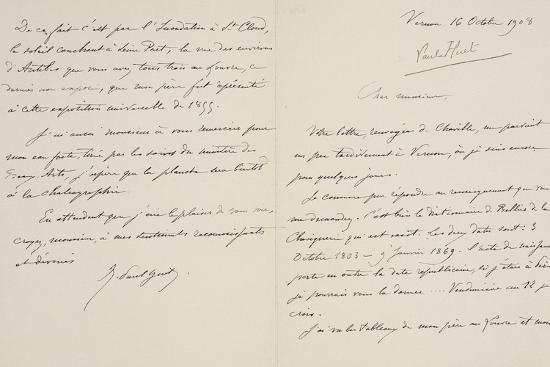 Vernon 16 Octobre 1908
Paul Huet
Cher monsieur,
Votre lettre, renvoyée de Chaville, me parvient
un peu tardivement à Vernon, où je suis encore
pour quelques jours.
Je commence par répondre au renseignement que vous
me demandez. C'est bien le dictionnaire de Bellier de la
Chavignerie qui est exact. Les deux dates sont : 3
Octobre 1803 — 9 janvier 1869. l'acte de naissance
porte en outre la date républicaine, si j'étais à
je pourrais vous la donner .... Vendémiaire an 12 je
crois.
J'ai vu les tableaux de mon père au Louvre et
De ce fait c'est par l'Inondation à St Cloud,
le soleil couchant à Seine Port, la vue des environs
d'Antibes que vous avez tous trois au Louvre, ce
dernier non exposé, que mon père fut représenté
à cette exposition universelle de 1855.
J'ai aussi monsieur à vous remercier pour
mon eau forte, tirée par les soins du ministère des
Beaux Arts, j'espère que la planche sera bientôt
à la chalcographie.
En attendant que j'aie le plaisir de vous voir,
croyez, monsieur, à mes sentiments reconnaissants
et dévoués
Paul Huet